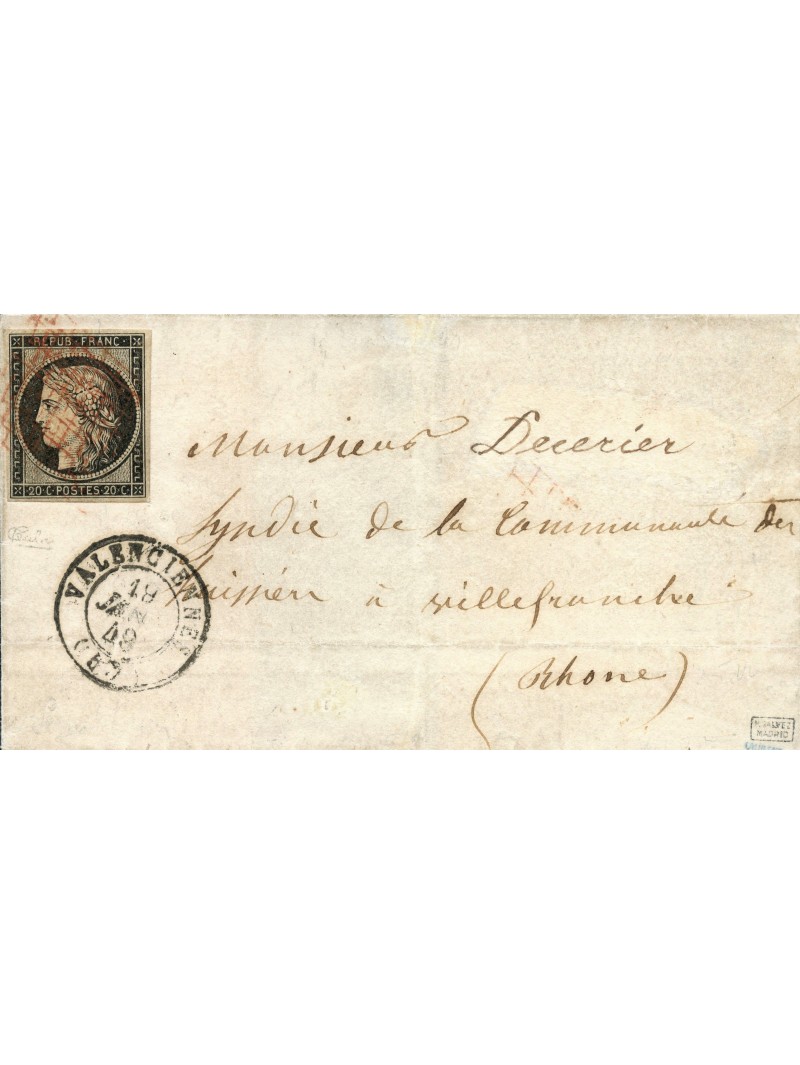 REPUB. FRANC.
20·C·POSTES·20·C·
Monsieur Decerier
Syndic de la Communauté des
huissiers à Villefranche
(Rhone)
VALENCIENNES
18
JANV.
49
MADRID